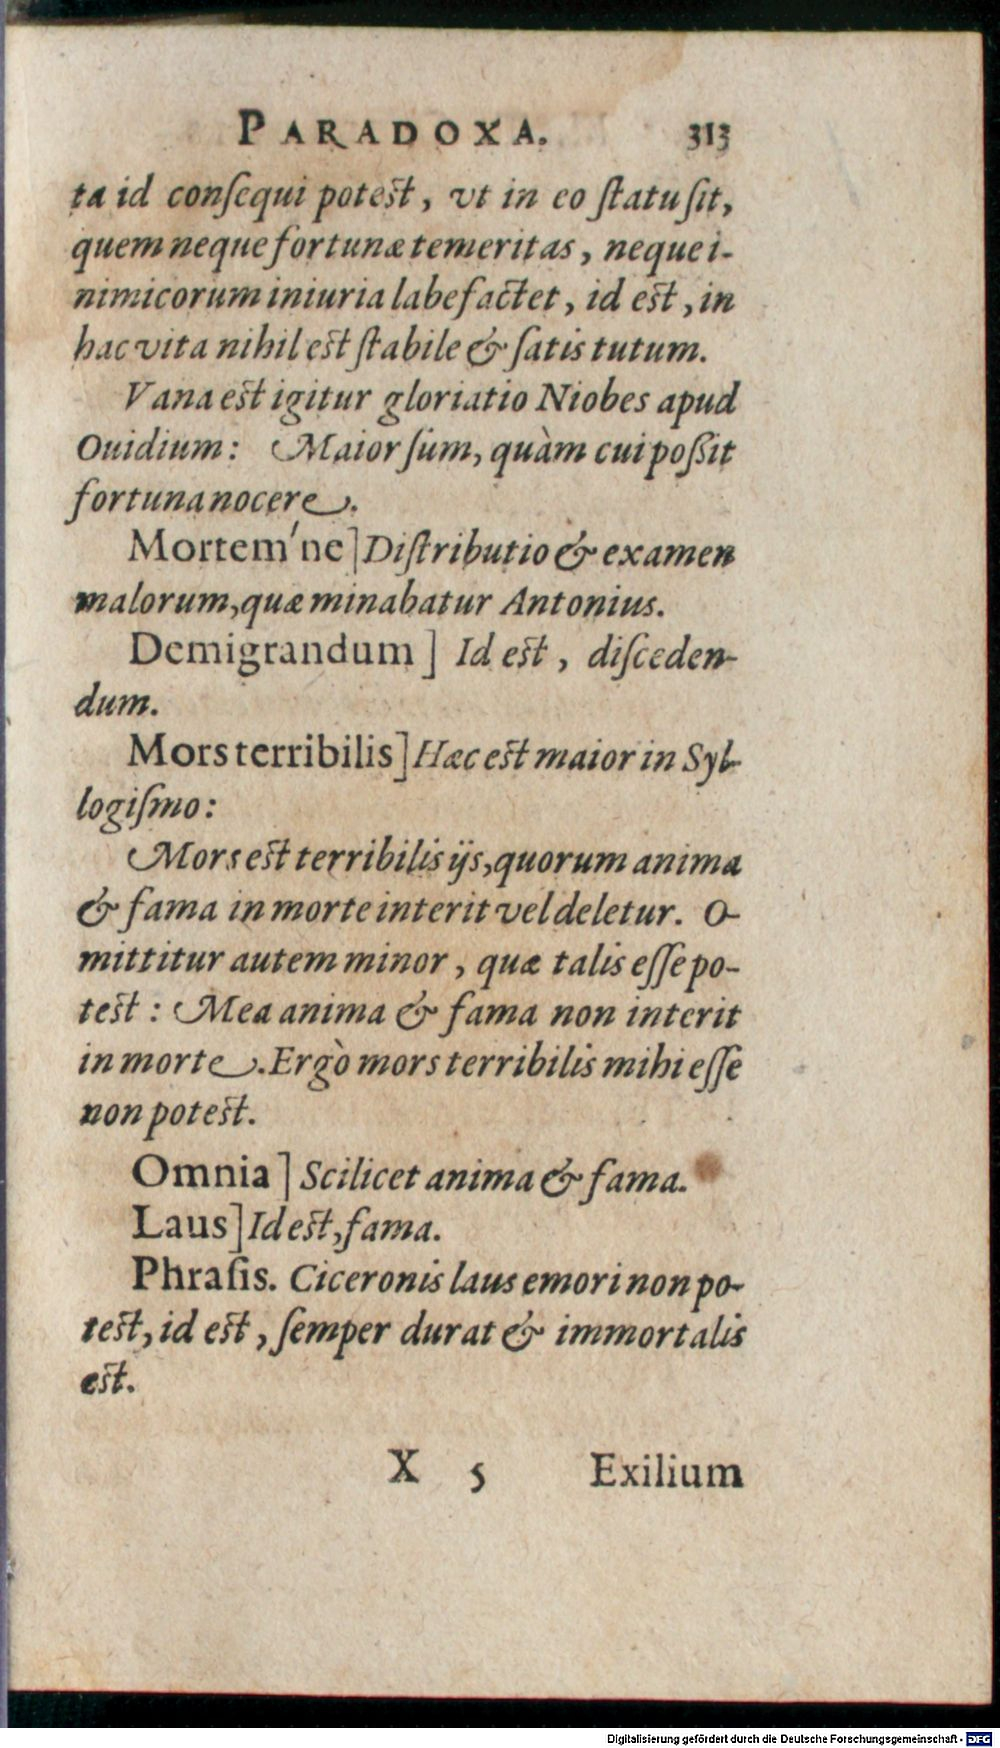 PARADOXA. 313
ta id conſequi poteſt, vt in eo ſtatu ſit,
quem neque fortunæ temeritas, neque i-
nimicorum iniuria labefactet, id eſt, in
hac vita nihil eſt ſtabile & ſatis tutum.
Vana eſt igitur gloriatio Niobes apud
Ouidium: Maior ſum, quàm cui poßit
fortuna nocere.
Mortem'ne] Diſtributio & examen
malorum, quæ minabatur Antonius.
Demigrandum] Id eſt, diſceden-
dum.
Mors terribilis] Hæc eſt maior in Syl-
logiſmo:
Mors eſt terribilis ijs, quorum anima
& fama in morte interit vel deletur. O-
mittitur autem minor, quæ talis eſſe po-
teſt: Mea anima & fama non interit
in morte. Ergò mors terribilis mihi eſſe
non poteſt.
Omnia] Scilicet anima & fama.
Laus] Id eſt, fama.
Phraſis. Ciceronis laus emori non po-
teſt, id eſt, ſemper durat & immortalis
eſt.
X 5 Exilium
Digitalisierung gefördert durch die Deutsche Forschungsgemeinschaft - DFG